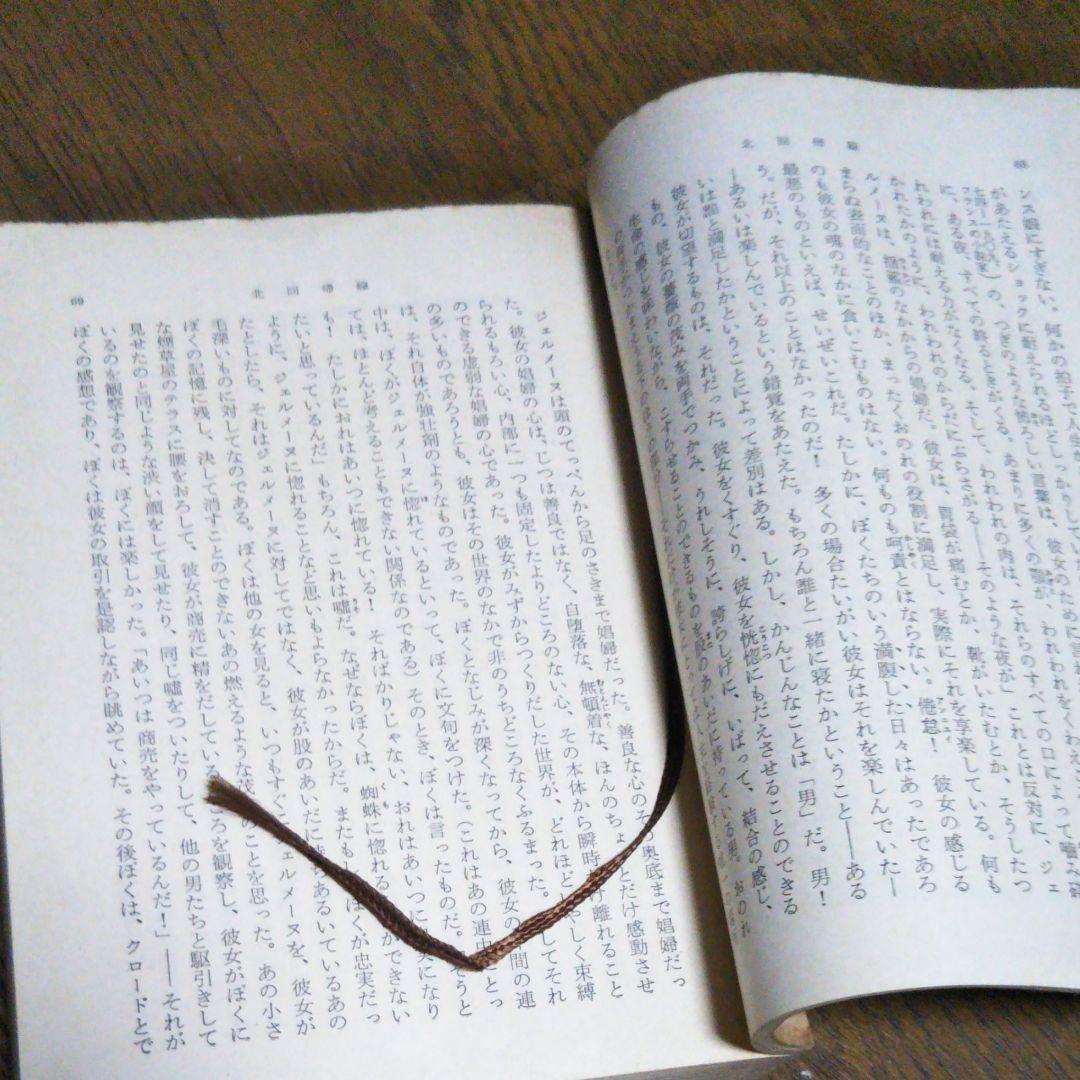 北回帰線
68
ンス娼にすぎない。何かの拍子で人生が
があたえるショックに耐えられるほどしっかりし
の、つぎのような
に、ある夜、すべての終るときがくる。あまりに多くの
われわれには耐える力がなくなる。そして、われわれの肉は、それらのすべての口によって噛み
かれたかのように、われわれのからだにぶらさがる――そのような夜が」これとは反対に、ジェ
ルメーヌは、揺籃のなかからの娼婦だ。彼女は、胃袋が痛むとか、靴がいたむとか、そうしたつ
まらぬ表面的なことのほか、まったくおのれの役割に満足し、実際にそれを享楽している。何も
のも彼女の魂のなかに食いこむものはない。何ものも呵責とはならない。倦怠! 彼女の感じる
最悪のものといえば、せいぜいこれだ。たしかに、ぼくたちのいう満腹した日々はあったであろ
う。だが、それ以上のことはなかったのだ! 多くの場合たいがい彼女はそれを楽しんでいた――
――あるいは楽しんでいるという錯覚をあたえた。もちろん誰と一緒に寝たかということ――ある
いは誰と満足したかということによって差別はある。しかし、かんじんなことは「男」だ。男!
彼女が切望するものは、それだった。彼女をくすぐり、彼女を恍惚にもだえさせることのできる
もの、彼女の薔薇の茂みを両手でつかみ、うれしそうに、誇らしげに、いばって、結合の感じ、
生命の感じを味わいながら、こすらせることのできるものを股のあいだに持っている男。おのれ
北回帰線
69
ジェルメーヌは頭のてっぺんから足のさきまで娼婦だった。善良な心のその奥底まで娼婦だっ
た。彼女の娼婦の心は、じつは善良ではなく、自堕落な、無頓着な、ほんのちょっとだけ感動させ
られるもろい心、内部に一つも固定したよりどころのない心、その本体から瞬時 け離れること
のできる虚弱な娼婦の心であった。彼女がみずからつくりだした世界が、どれほど やしく束縛
の多いものであろうとも、彼女はその世界のなかで非のうちどころなくふるまった。 してそれ
は、それ自体が強壮剤のようなものであった。ぼくとなじみが深くなってから、彼女の 間の連
中は、ぼくがジェルメーヌに惚れているといって、ぼくに文句をつけた。(これはあの連中 とっ
ては、ほとんど考えることもできない関係なのである)そのとき、ぼくは言ったものだ。 そうと
も! たしかにおれはあいつに惚れている! そればかりじゃない、おれはあいつに 実になり
たいと思っているんだ」もちろん、これは嘘だ。なぜならぼくは、蜘蛛に惚れる かできない
ように、ジェルメーヌに惚れることなど思いもよらなかったからだ。またもし ぼくが忠実だっ
たとしたら、それはジェルメーヌに対してではなく、彼女が股のあいだに あるいているあの
毛深いものに対してなのである。ぼくは他の女を見ると、いつもすぐ ェルメーヌを、彼女が
ぼくの記憶に残し、決して消すことのできないあの燃えるような茂 のことを思った。あの小さ
な煙草屋のテラスに腰をおろして、彼女が商売に精をだしている ころを観察し、彼女がぼくに
見せたのと同じような渋い顔をして見せたり、同じ嘘をついたりして、他の男たちと駆引きして
いるのを観察するのは、ぼくには楽しかった。「あいつは商売をやっているんだ!」――それが
ぼくの感想であり、ぼくは彼女の取引を是認しながら眺めていた。その後ぼくは、クロードとで